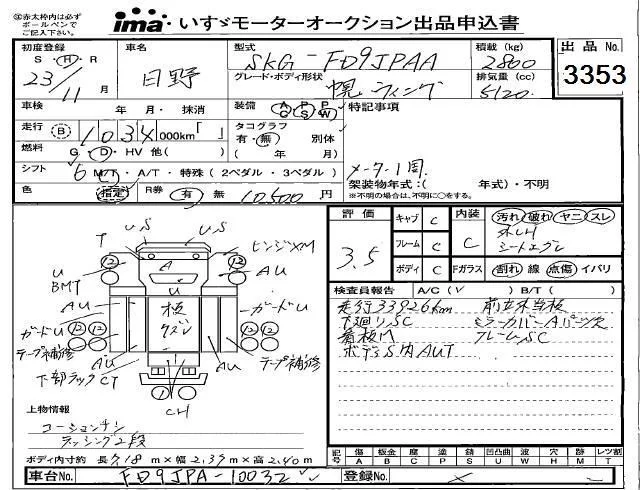 ◎赤太枠内は必ず
ボールペンで
ご記入下さい。
ima いすゞモーターオークション出品申込書
初度登録 車名 型式 積載 (kg) 出品 No.
S・H・R 23/11 月 日野 SKG-FD9JPAA 2800
グレード・ボディ形状 排気量 (cc) 3353
幌ウィング 5120
車検 年 月・ 抹消 装備 A P P G S W 特記事項
走行 B 1034 000km「 」 タコグラフ
有・無 別体
燃料 G・D・HV 他( ) ( 年 月)
シフト 6 M/T・A/T・特殊 (2ペダル・3ペダル) メーター1周
架装物年式:( 年式)・不明
※不明の場合は、不明に○をする。
色 指定 R券 有 無 10,500 円
評価 3.5 キャブ C 内装 C 汚れ 破れ ヤニ スレ
フレーム C
ボディ C Fガラス 割れ 線 点傷 イバリ
検査員報告 A/C (レ) B/T ( )
走行33926km
下廻りSC ミラーカバー
看板M フレームSC
ボデーS内AUT
T US US ヒンジXM
12 12
U A AU
BMT
AU ガードU
ガードU
12 12 12 12
テープ補修 AU AU テープ補修
下部ラックCT
CH
上物情報
コーションチン
ラッシング2段
ボディ内寸約 長 718 m×幅 2.39 m×高 2.40 m
記号 傷 A 板金 B 腐 C 塗 P 錆 S 凹凸曲 U 波 W 穴 H 跡 M レツ割 T
車台No. FD9JPA-10032 登録No.